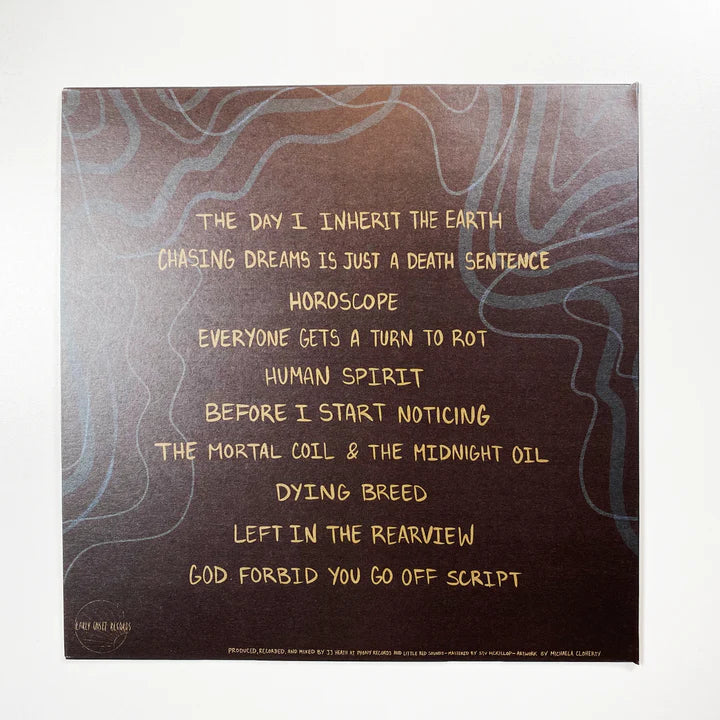 THE DAY I INHERIT THE EARTH
CHASING DREAMS IS JUST A DEATH SENTENCE
HOROSCOPE
EVERYONE GETS A TURN TO ROT
HUMAN SPIRIT
BEFORE I START NOTICING
THE MORTAL COIL & THE MIDNIGHT OIL
DYING BREED
LEFT IN THE REARVIEW
GOD FORBID YOU GO OFF SCRIPT
EARLY ONSET RECORDS
PRODUCED, RECORDED, AND MIXED BY JJ HEATH AT PHONY RECORDS AND LITTLE RED SOUNDS - MASTERED BY STU MCKILLOP - ARTWORK BY MICHAELA CLOHERTY